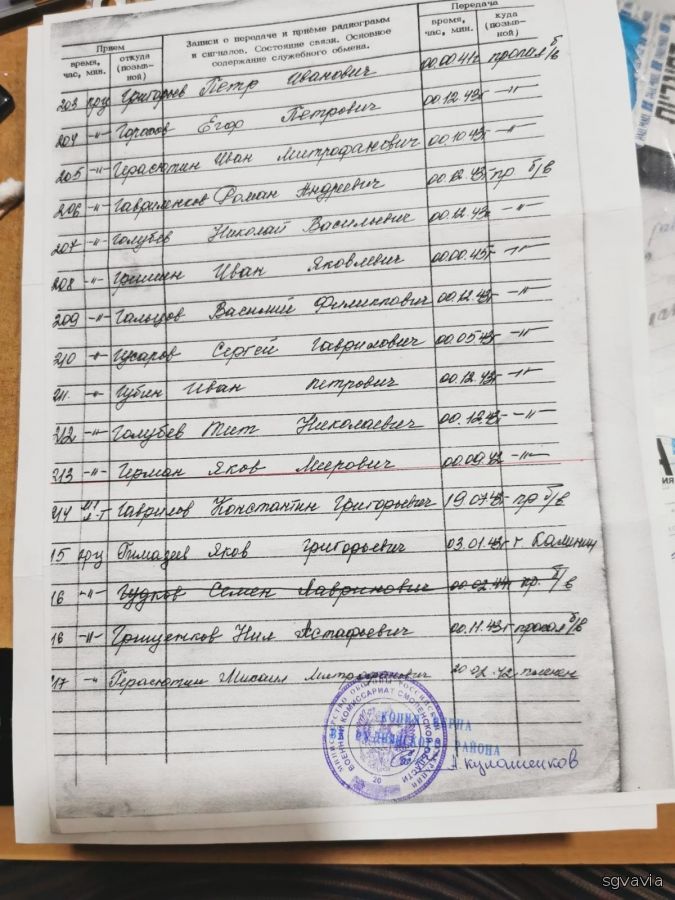 Прием
Записи о передаче и приёме радиограмм и сигналов. Состояние связи. Основное содержание служебного обмена.
Передача
время, час, мин.
откуда (позывной)
время, час, мин.
куда (позывной)
203 гру Григорьев Петр Иванович 00.00.41г пропал б/в
204 -"- Егор Петрович 00.12.43г -"-
205 -"- Герасютин Иван Митрофанович 00.10.43г -"-
206 -"- Гавриленков Роман Андреевич 00.12.43г пр б/в
207 -"- Голубев Николай Васильевич 00.12.43г -"-
208 -"- Гришин Иван Яковлевич 00.00.45г -"-
209 -"- Гальцов Василий Филиппович 00.12.43г -"-
210 -"- Гусаров Сергей Гаврилович 00.05.43г -"-
211 -"- Губин Иван Петрович 00.12.43г -"-
212 -"- Голубев Тит Николаевич 00.12.43г -"-
213 -"- Герман Яков Меерович 00.09.42 -"-
214 Гаврилов Константин Григорьевич 19.07.42г пр б/в
15 Яков Григорьевич 03.01.43г г. Калинин
16 -"- Гудков Семен Лавринович 00.02.44 пр. б/в
16 -"- Грищенков Нил Астафьевич 00.11.43г пропал б/в
17 -"- Герасютин Михаил Митрофанович 20.02.42 пленен
КОПИЯ ВЕРНА
РУДНЯНСКОГО РАЙОНА
ВОЕННЫЙ КОМИССАРИАТ СМОЛЕНСКОЙ ОБЛАСТИ
А кулашенков
sgvavia